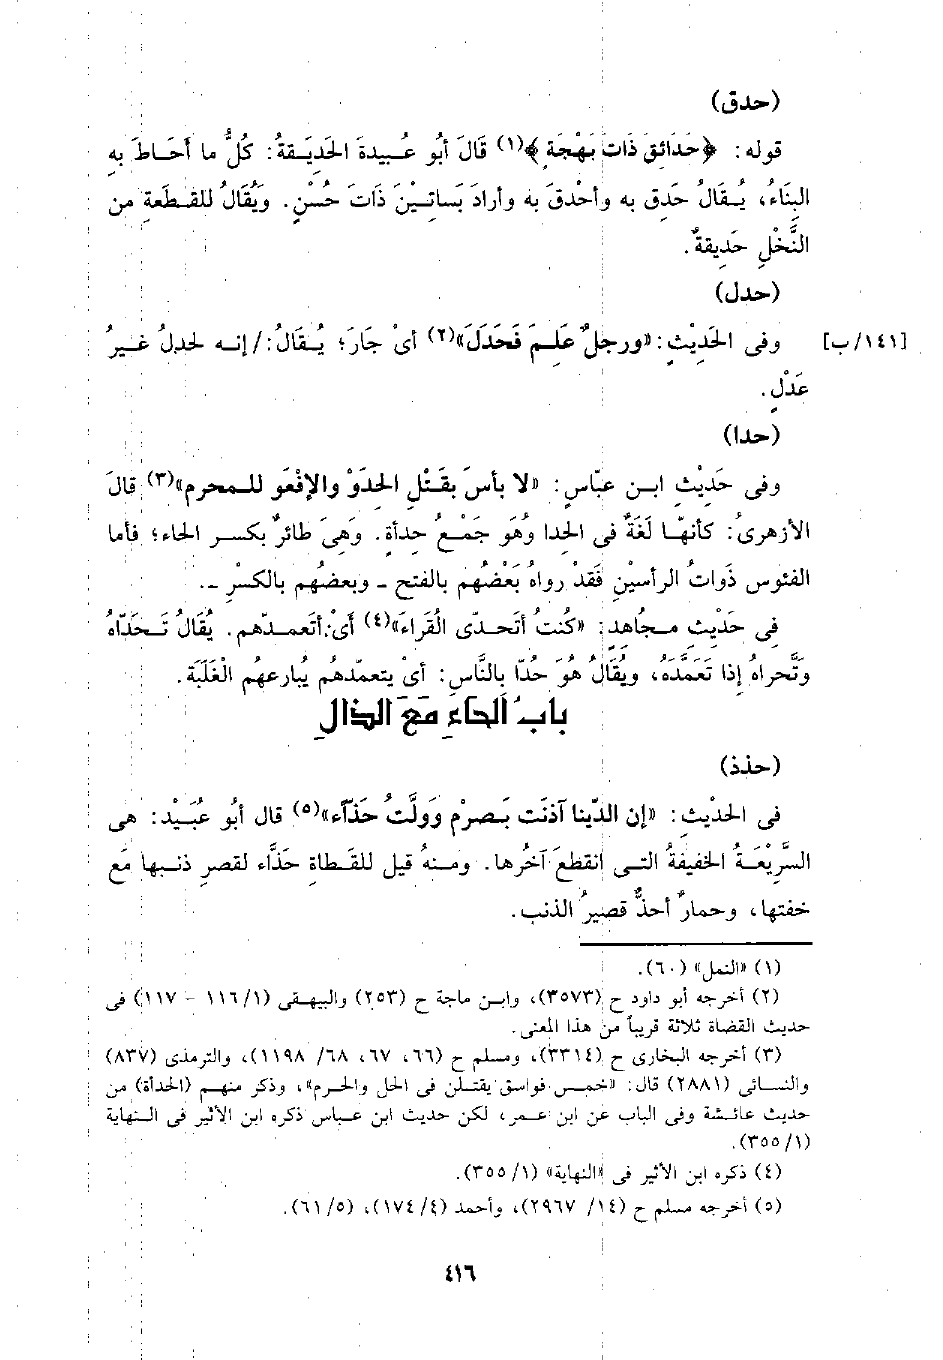 (حدق)
قوله: ﴿حَدَائِقَ ذَاتَ بَهْجَةٍ﴾(١) قَالَ أبُو عُبيدةَ الحَدِيقةُ: كُلُّ ما أحَاطَ بِهِ
البِنَاءُ، يُقَالُ حَدِق به وأحْدقَ به وأرادَ بَساتِيْنَ ذَاتَ حُسْنٍ. وَيُقَالُ للقطعةِ من
النَّخْلِ حَدِيقةٌ.
(حدل)
[١٤١/ب] وفى الحَدِيْثِ: «ورجلٌ عَلِمَ فَحَدَلَ»(٢) أىْ جَارَ؛ يُقَالُ:/ إنه لحدلُ غيرُ
عَدْلٍ.
(حدا)
وفى حَدِيْثِ ابن عبّاسٍ: «لا بأسَ بقَتْلِ الحِدَوْ والإفْعَو للمحرم»(٣) قالَ
الأزهرىُ: كأنهّا لَغَةٌ فى الحِدا وهُوَ جَمْعُ حِدأةٍ. وَهِىَ طائرٌ بكسرِ الحاء؛ فأما
الفئوس ذَواتُ الرأسيْنِ فَقدْ رواهُ بَعْضُهُم بالفتح - وبعضُهُم بالكسْرِ -.
فِى حَدْيثِ مجاهد: «كُنتُ أتَحدّى الْقُراءَ»(٤) أىْ أتعمدهم. يُقَالُ تَحَدّاهُ
وَتَّحراهُ إذا تَعَمَّدَهُ، ويُقَالُ هُوَ حُدّا بالنَّاسِ: أىْ يتعمّدهُم يُبارعهُم الْغَلَبَة.
بابُ الحَاءِ مَعَ الذالِ
(حذذ)
فى الحدْيثِ: «إن الدّينا آذنَت بَصرْم وَوَلَّتْ حَذّاء»(٥) قال أبُو عُبَيْد: هى
السَّرِيْعَةُ الخفيفةُ التى انقطعَ آخرُها. ومنهُ قيل للقطاةِ حَذَّاء لقصرِ ذنبها مَع
خفتها، وحمارٌ أحذٌّ قصيرُ الذنب.
(١) «النمل» (٦٠).
(٢) أخرجه أبو داود ح (٣٥٧٣)، وابن ماجة ح (٢٥٣) والبيهقى (١١٦/١ - ١١٧) فى
حديث القضاة ثلاثة قريباً من هذا المعنى.
(٣) أخرجه البخارى ح (٣٣١٤)، ومسلم ح (٦٦، ٦٧، ٦٨/ ١١٩٨)، والترمذى (٨٣٧)
والنسائى (٢٨٨١) قال: «خمس فواسق يقتلن فى الحل والحرم»، وذكر منهم (الحدأة) من
حديث عائشة وفى الباب عن ابن عمر، لكن حديث ابن عباس ذكره ابن الأثير فى النهاية
(٣٥٥/١).
(٤) ذكره ابن الأثير فى «النهاية» (٣٥٥/١).
(٥) أخرجه مسلم ح (١٤/ ٢٩٦٧)، وأحمد (١٧٤/٤)، (٦١/٥).
٤١٦